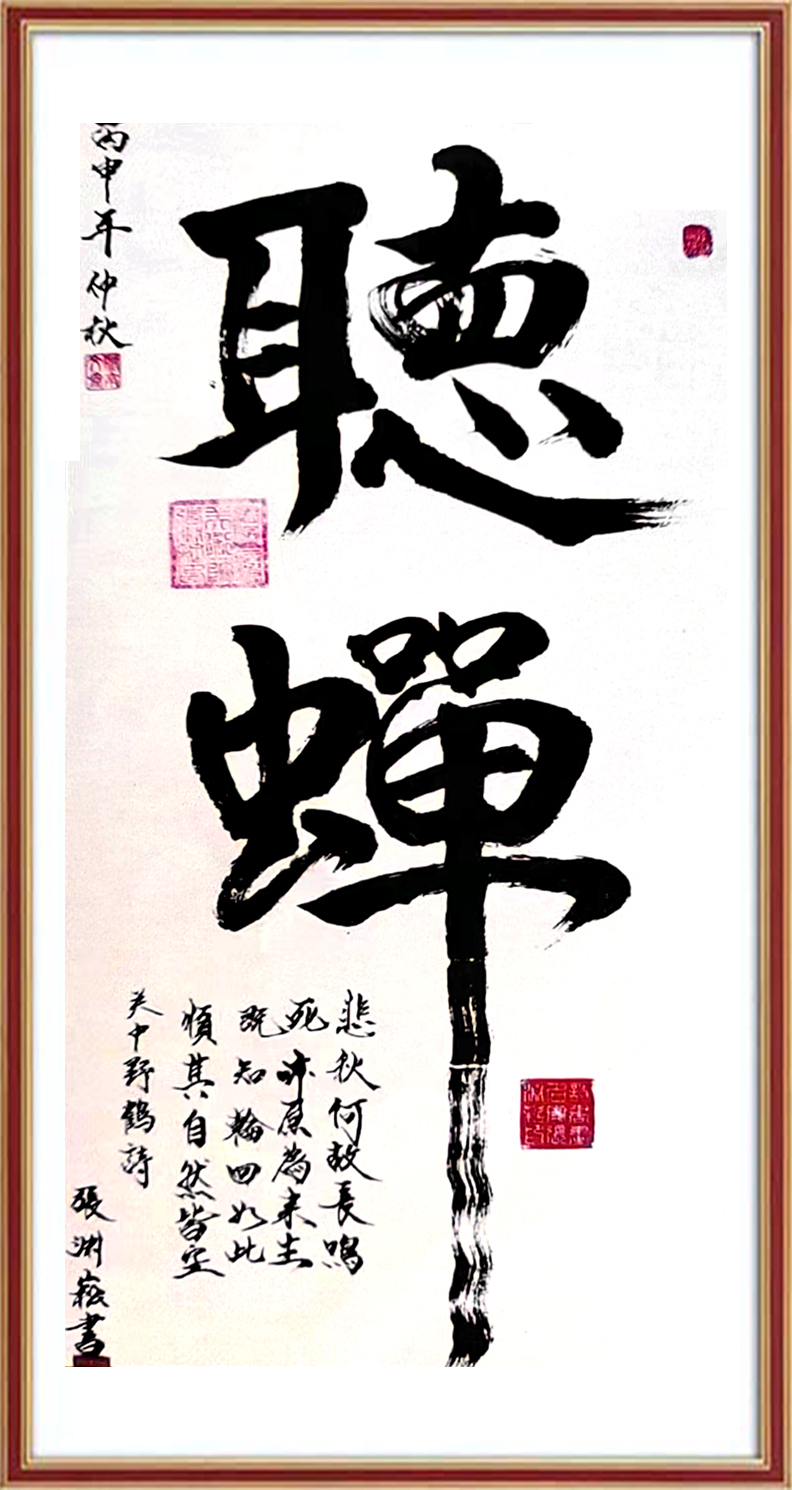 聽蟬
悲秋何故長鳴
死亦原為来生
既知輪回如此
順其自然皆空
关中野鶴詩
張渊崧書
丙申年仲秋